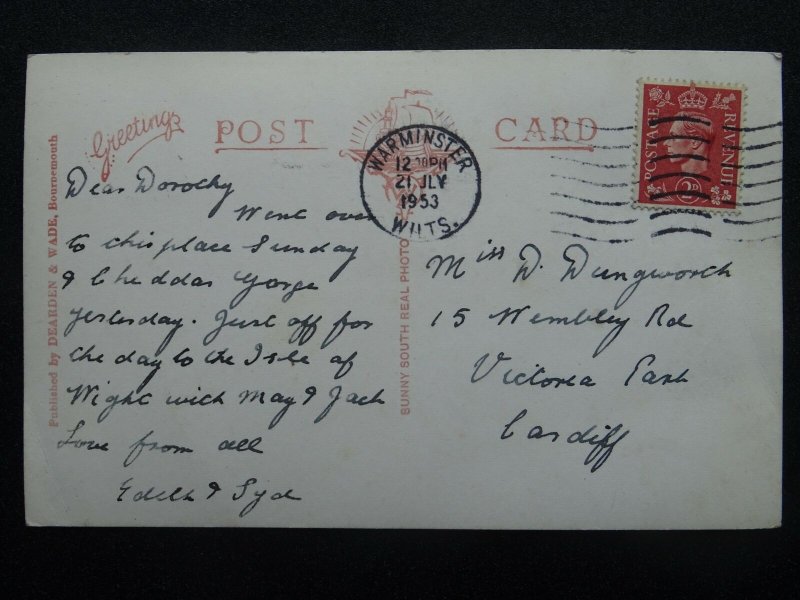 Greetings
POST CARD
Published by DEARDEN & WADE, Bournemouth
SUNNY SOUTH REAL PHOTO
WARMINSTER
12 PM
21 JLY
1953
WILTS.
POSTAGE REVENUE
Dear Dorothy
Went over
to this place Sunday
& Cheddar Gorge
yesterday. Just off for
the day to the Isle of
Wight with May & Jack
Love from all
Edith & Syd
Miss D. Dungworth
15 Wembley Rd
Victoria Park
Cardiff